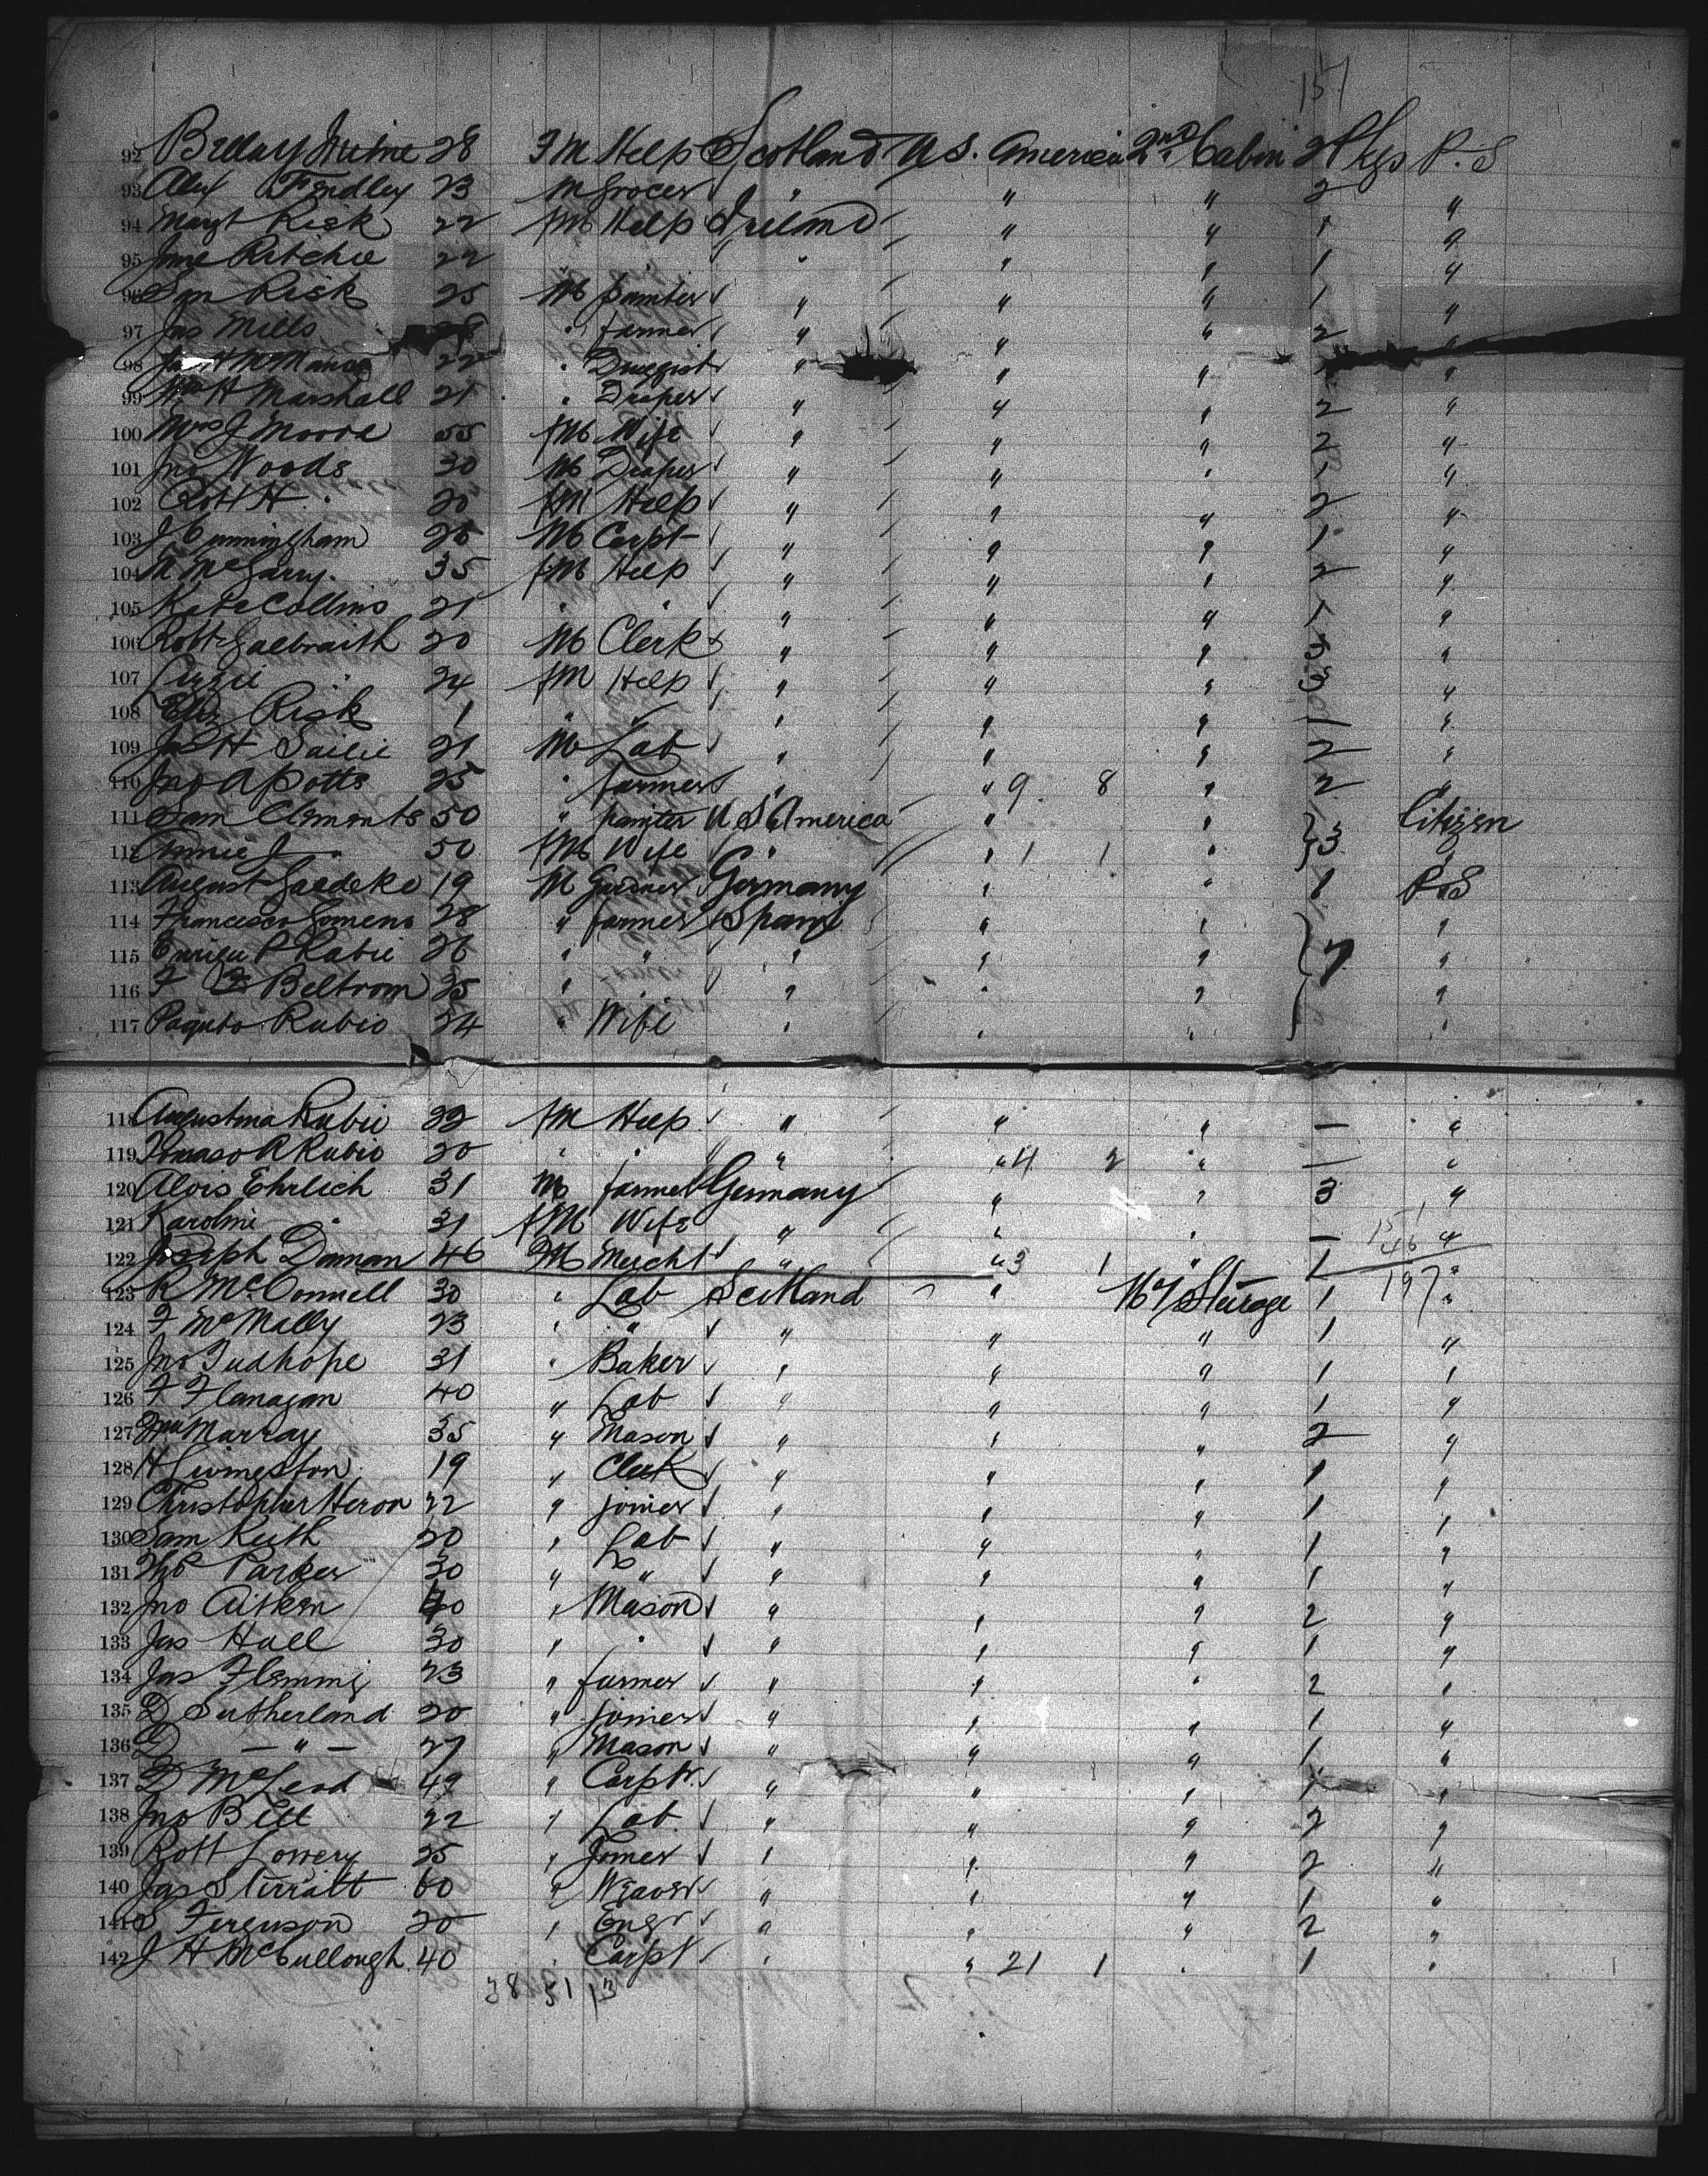 151
92 28 F M Help Scotland U S. America 2nd Cabin 2 Pkgs P. S
93 Alex Findley 23 M Grocer " " " 2 "
94 Margt Risk 22 f M Help Ireland " " 1 "
95 Jane Ritchie 22 " " " " " 1 "
96 Sam Risk 25 M painter " " " 1 "
97 Jas Mills " farmer " " " 2 "
98 22 " Druggist " " " "
99 Wm H Marshall 21 " Draper " " " 2 "
100 Mrs J Moore 55 f M Wife " " " 2 "
101 Jno Woods 30 M Draper " " " 1 "
102 Robt H " 20 f M Help " " " 2 "
103 J Cunningham 26 M Carpt " " " 1 "
104 M McGarry 35 f M Help " " " 2 "
105 Kate Collins 21 " " " " " 1 "
106 Robt Galbraith 20 M Clerk " " " 3 "
107 Lizzie " 24 f M Help " " " 3 "
108 Eliz Risk 1 " " " " " 1 "
109 Jas H Sailie 21 M Lab " " " 2 "
110 Jno A Potts 25 " farmer " " 9 8 " 2 "
111 Sam Clements 50 " painter U S America " " } 3 Citizen
112 Annie J " 50 f M Wife " " 1 1 " "
113 August Gaedeke 19 M Germany " " 1 P S
114 Francesco Gomeno 28 " farmer Spain " " } 7 "
115 Enrique P Rabie 26 " " " " " "
116 F F Beltrom 35 " " " " " "
117 Paquto Rubio 24 " Wife " " " "
118 Augustina Rubii 22 f M Help " " " — "
119 Tomaso A Rubio 20 " " " " 4 2 " — "
120 Alois Ehrlich 31 M farmer Germany " " 3 "
121 Karoline " 31 f M Wife " " " — "
151
46
122 Joseph Daman 46 M Mercht " " 3 1 " 1 "
197
123 R McConnell 30 " Lab Scotland " Steerage 1 "
124 F McNally 23 " " " " " 1 "
125 Jno Tudhope 31 " Baker " " " 1 "
126 F Flanagan 40 " Lab " " " 1 "
127 Wm Murray 35 " Mason " " " 2 "
128 H Livingston 19 " Clerk " " " 1 "
129 Christopher Heron 22 " joiner " " " 1 "
130 Sam Keith 20 " Lab " " " 1 "
131 Thos Parker 30 " " " " " 1 "
132 Jno Aitken " Mason " " " 2 "
133 Jas Hall 30 " " " " " 1 "
134 Jas Flemming 23 " farmer " " " 2 "
135 D Sutherland 20 " joiner " " " 1 "
136 D — " — 27 " Mason " " " 1 "
137 D McLeod 49 " Carptr. " " " 1 "
138 Jno Bell 22 " Lab. " " " 2 "
139 Robt Lowery 25 " Joiner " " " 2 "
140 Jas Sterratt 60 " Weaver " " " 1 "
141 Ferguson 20 " Engr " " " 2 "
142 J H McCullough 40 " Carpt " " 21 1 " 1 "
38 51 13